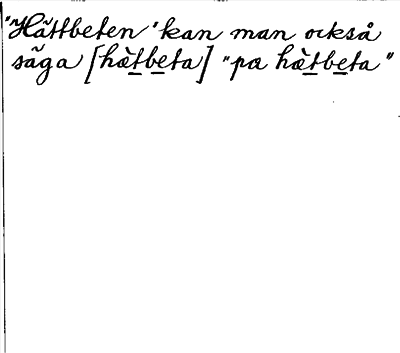 "Hättbeten" kan man också
säga [hæ̀tbeta] "pa hæ̀tbeta"